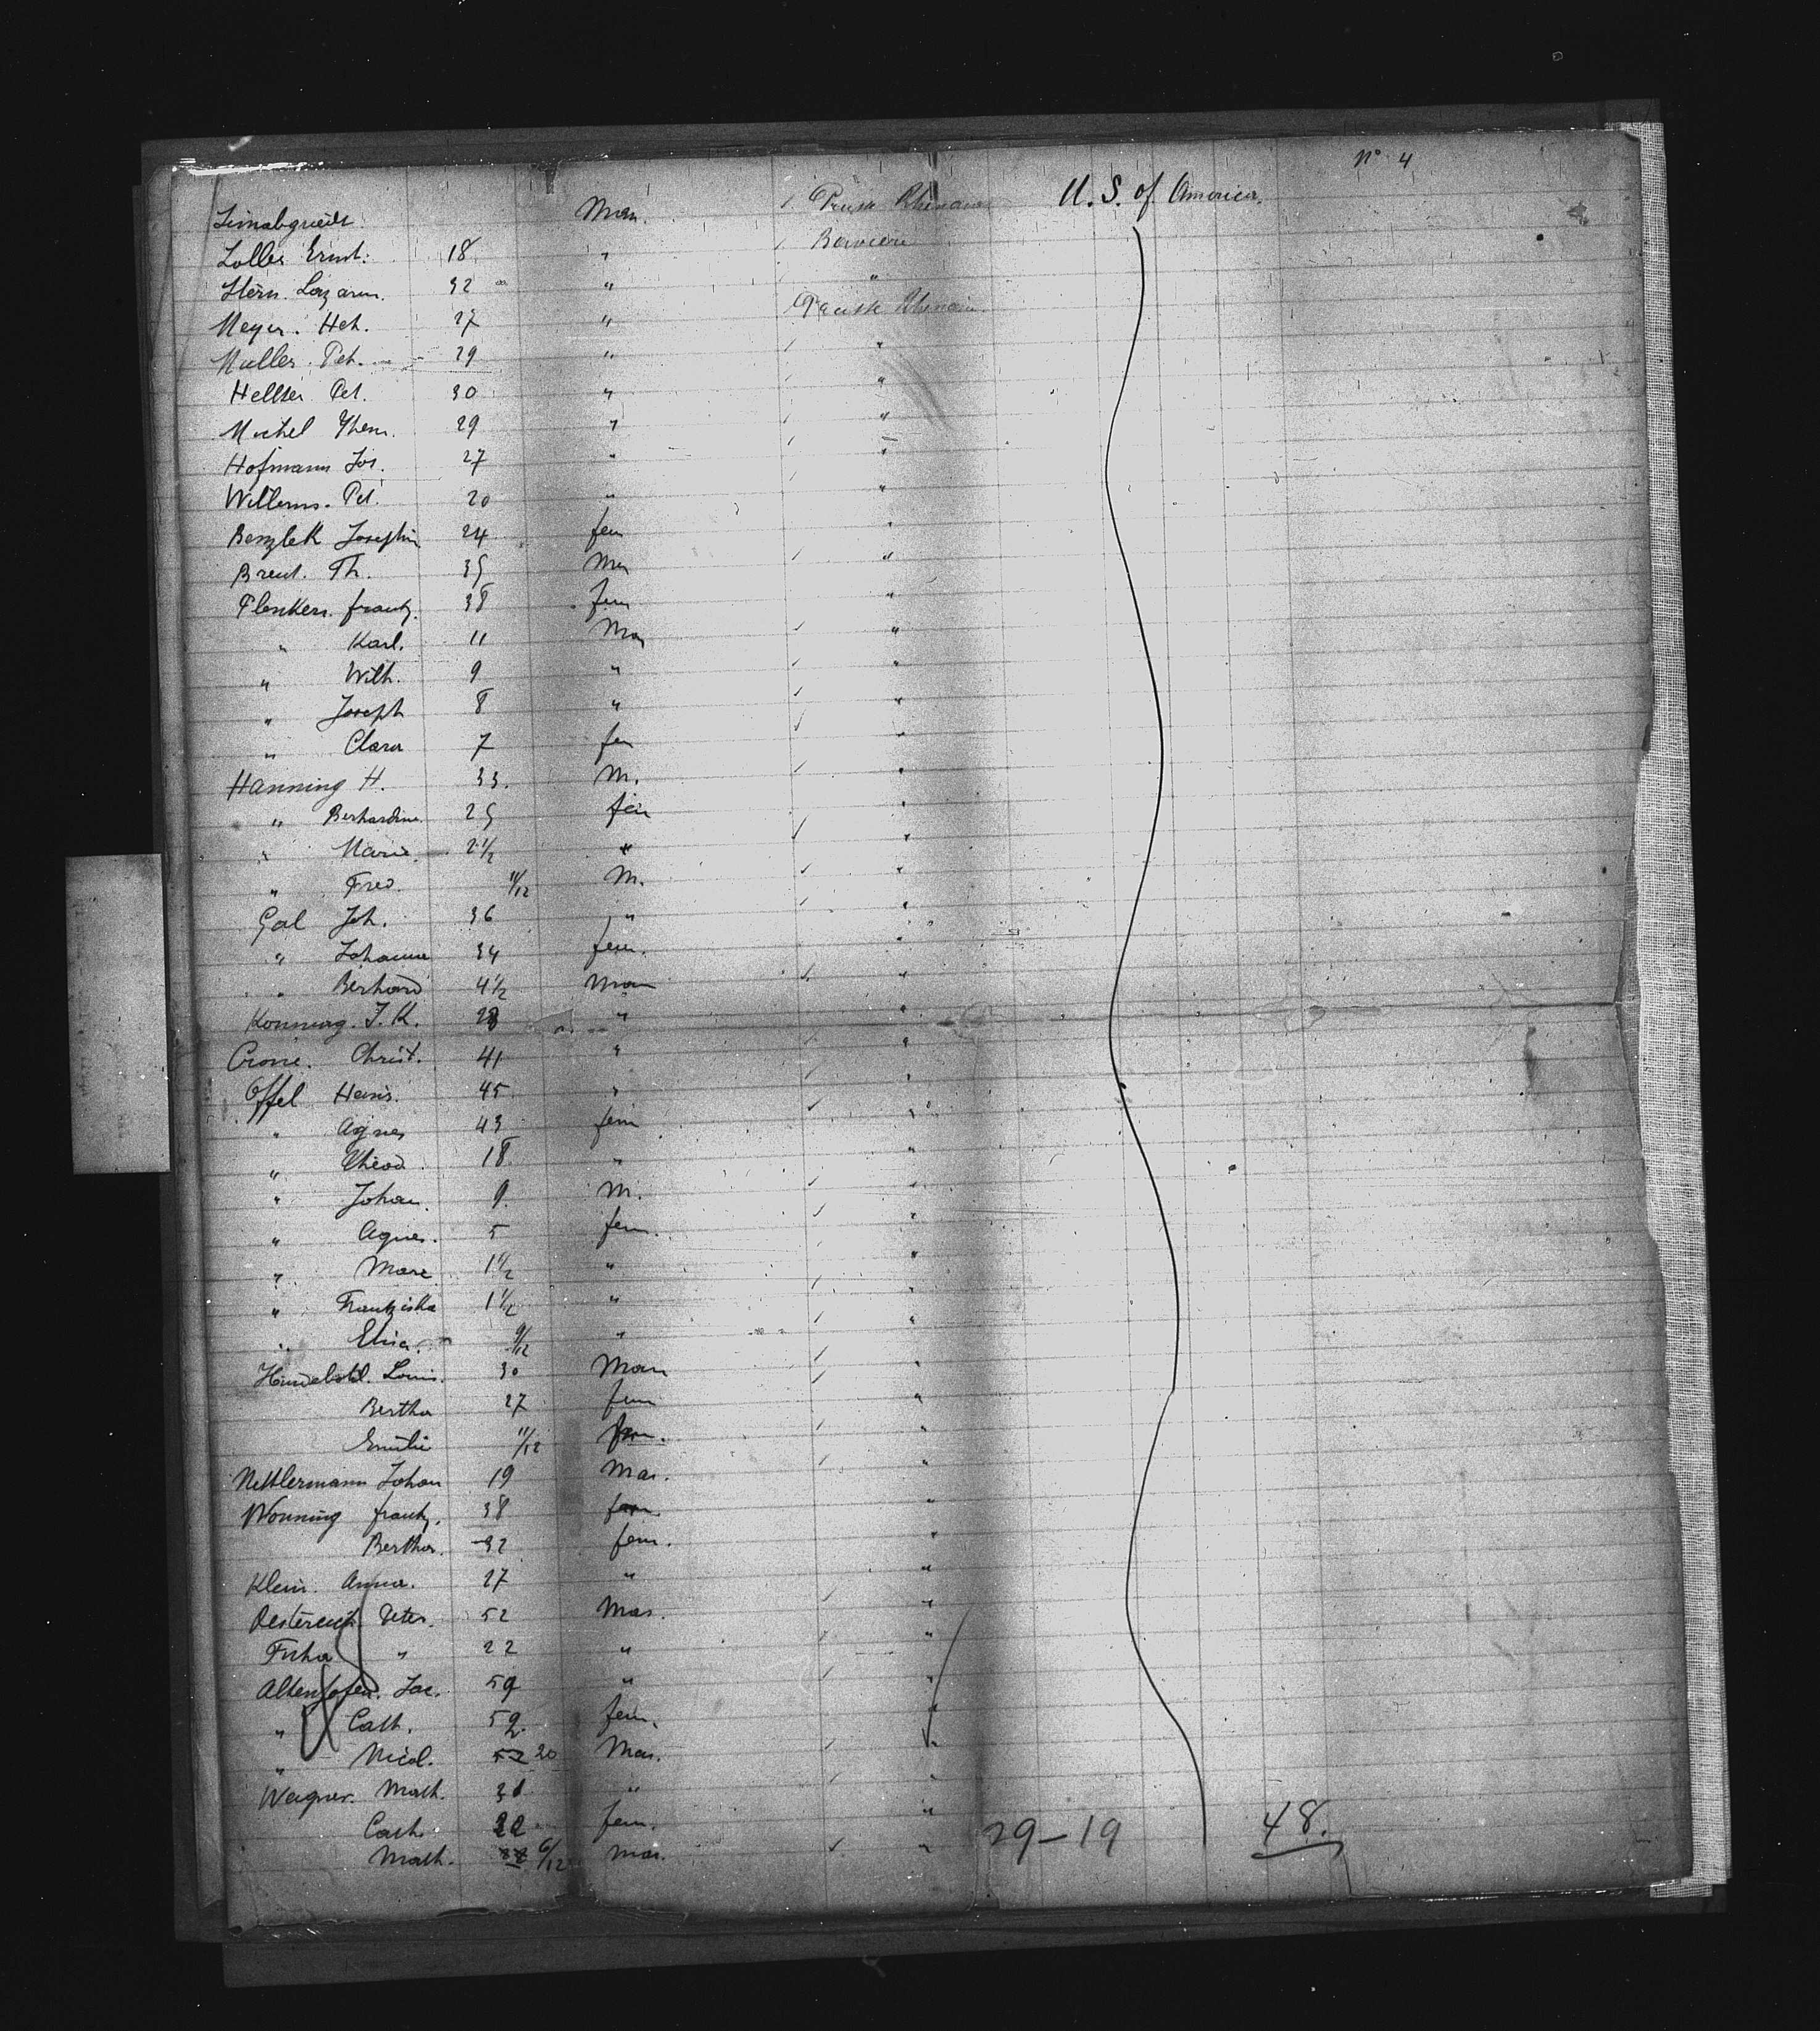 Nº 4
Man. Pruss Rhenan U. S. of America.
Lolles Ernst. 18 " Baviere
Stern. Lazarus. 32 " "
Meyer. Hch. 27 " Prusse Rhenan
Muller. Pet. 29 " "
Hellser Pet. 30 " "
Michel 29 " "
Hofmann Jos. 27 " "
Willems. Pet. 20 " "
Josephin 24 fem "
Brent. Th. 35 Man "
Plenkers. frantz. 38 fem "
" Karl. 11 Man "
" Wilh. 9 " "
" Joseph 8 " "
" Clara 7 fem "
Hanning H. 33. M. "
" Berhardine 25 fem "
" Marie. 2 1/2 " "
" Fred. 11/12 M. "
Gal Joh. 36 " "
" Johanna 34 fem. "
" Berhard 4 1/2 Man "
J. K. " "
Crone. Christ. 41 " "
Offel Heinr. 45 " "
" Agnes 43 fem "
" Theod. 18 " "
" Johan. 9. M. "
" Agnes. 5 fem. "
" Marie 1 1/2 " "
" Frantziska 1 1/2 " "
" Elisa. 9/12 " "
Louis. 30 Man "
Bertha 27 fem "
Emilie 11/12 fem. "
Nettlermann Johan 19 Mas. "
Wonning frantz. 38 "
Bertha. 32 fem. "
Klein. Anna. 27 " "
Oestereich Peter. 52 Mas. "
" 22 " "
Altenhofen. Jac. 59 " "
" Cath. 52. fem. "
" Nicol. 20 Mas. "
Wagner. Math. 31 " "
Cath. 22 fem. " 29-19 48.
Math. 6/12 Mas. "